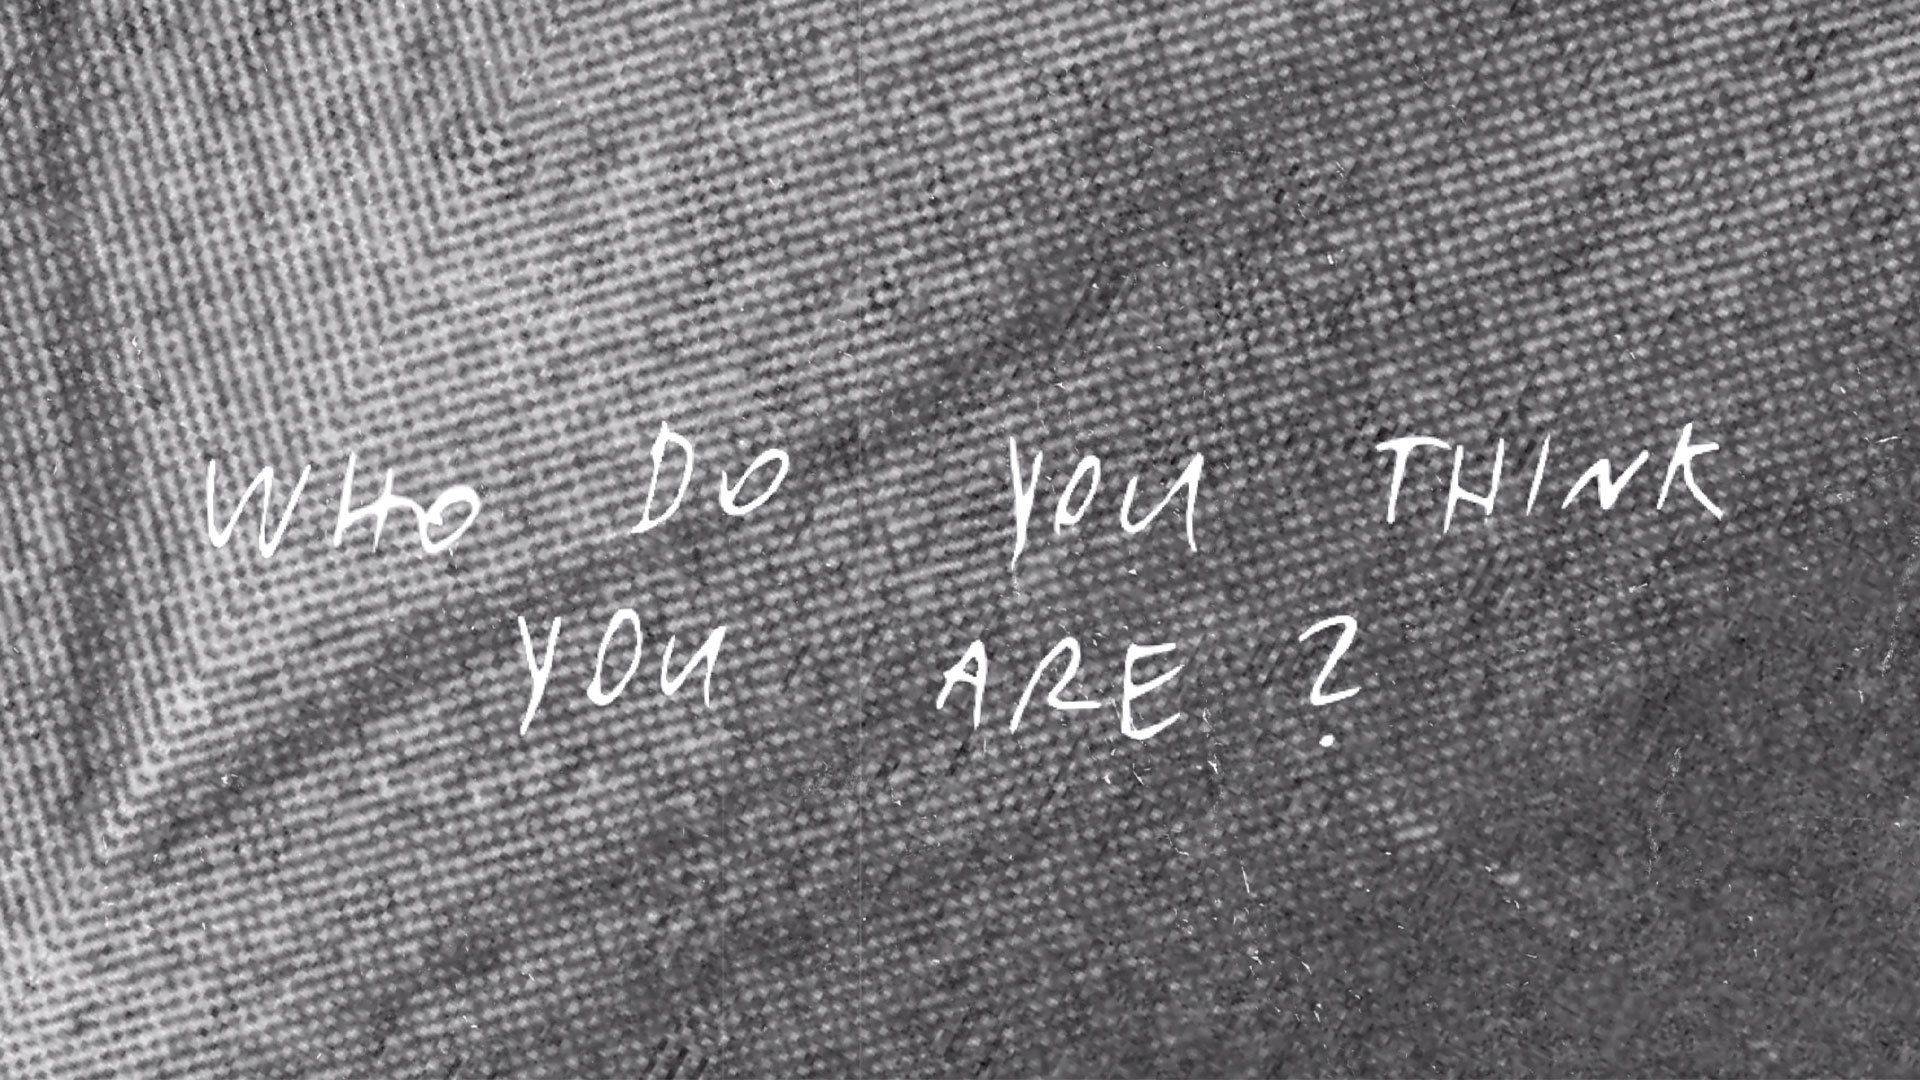 WHO DO YOU THINK
YOU ARE?